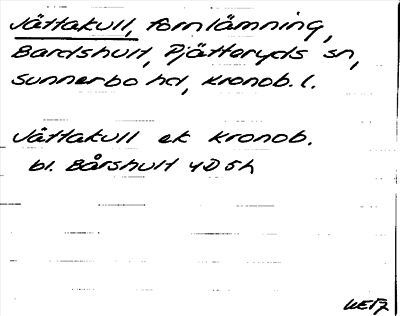 Jättakull, fornlämning,
Bardshult, Pjätteryds sn,
Sunnerbo hd, Kronob. l.
Jättakull ek Kronob.
bl. Bårshult 4D5h